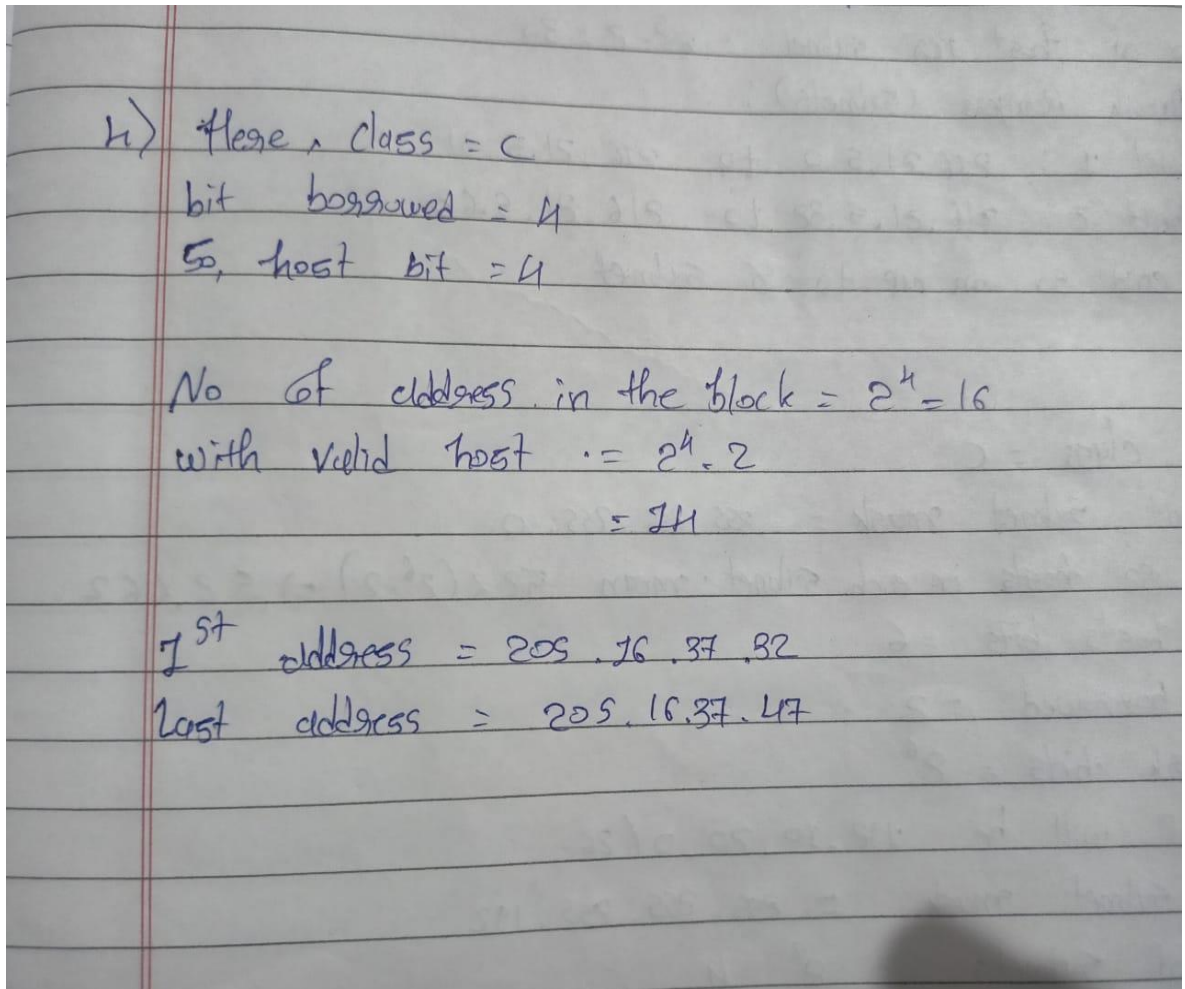 4) Here, Class = C
bit borrowed = 4
So, host bit = 4
No of address in the block = 2^4 = 16
with valid host = 2^4 - 2
= 14
1st address = 205.16.37.32
Last address = 205.16.37.47